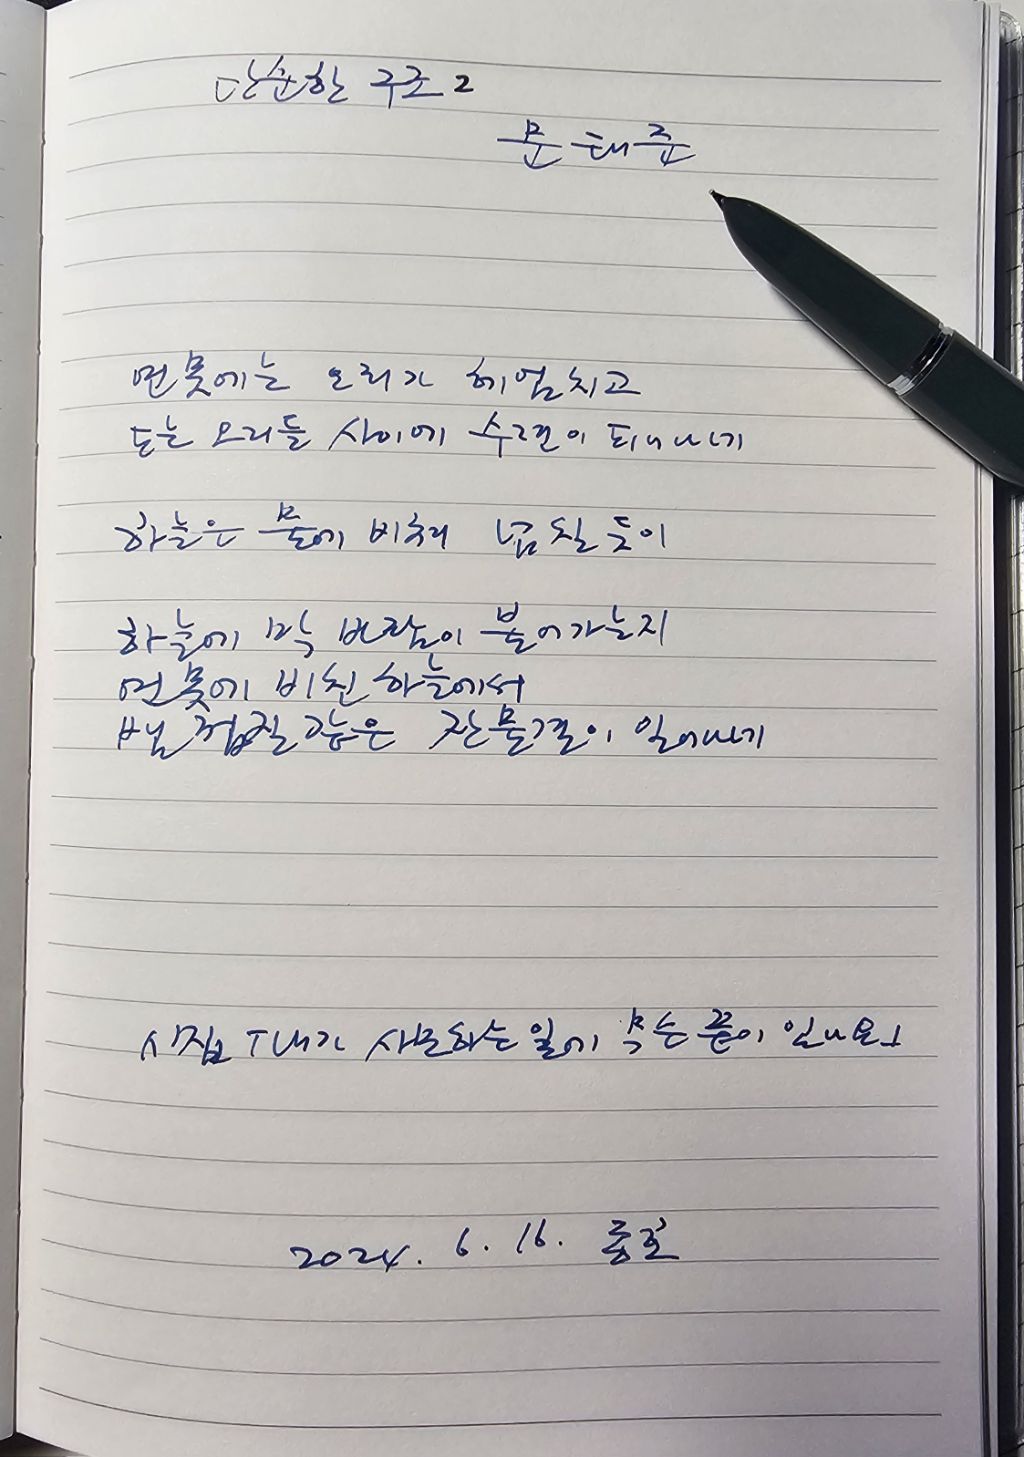 단순한 구조 2
문태준
연못에는 오리가 헤엄치고
또는 오리들 사이에 수련이 피어나네
하늘은 물에 비춰 넘칠 듯이
하늘에 막 바람이 불어가는지
연못에 비친 하늘에서
뱀 껍질 같은 잔물결이 일어나네
시집 『내가 사모하는 일에 무슨 끝이 있나요』
2024. 6. 16.